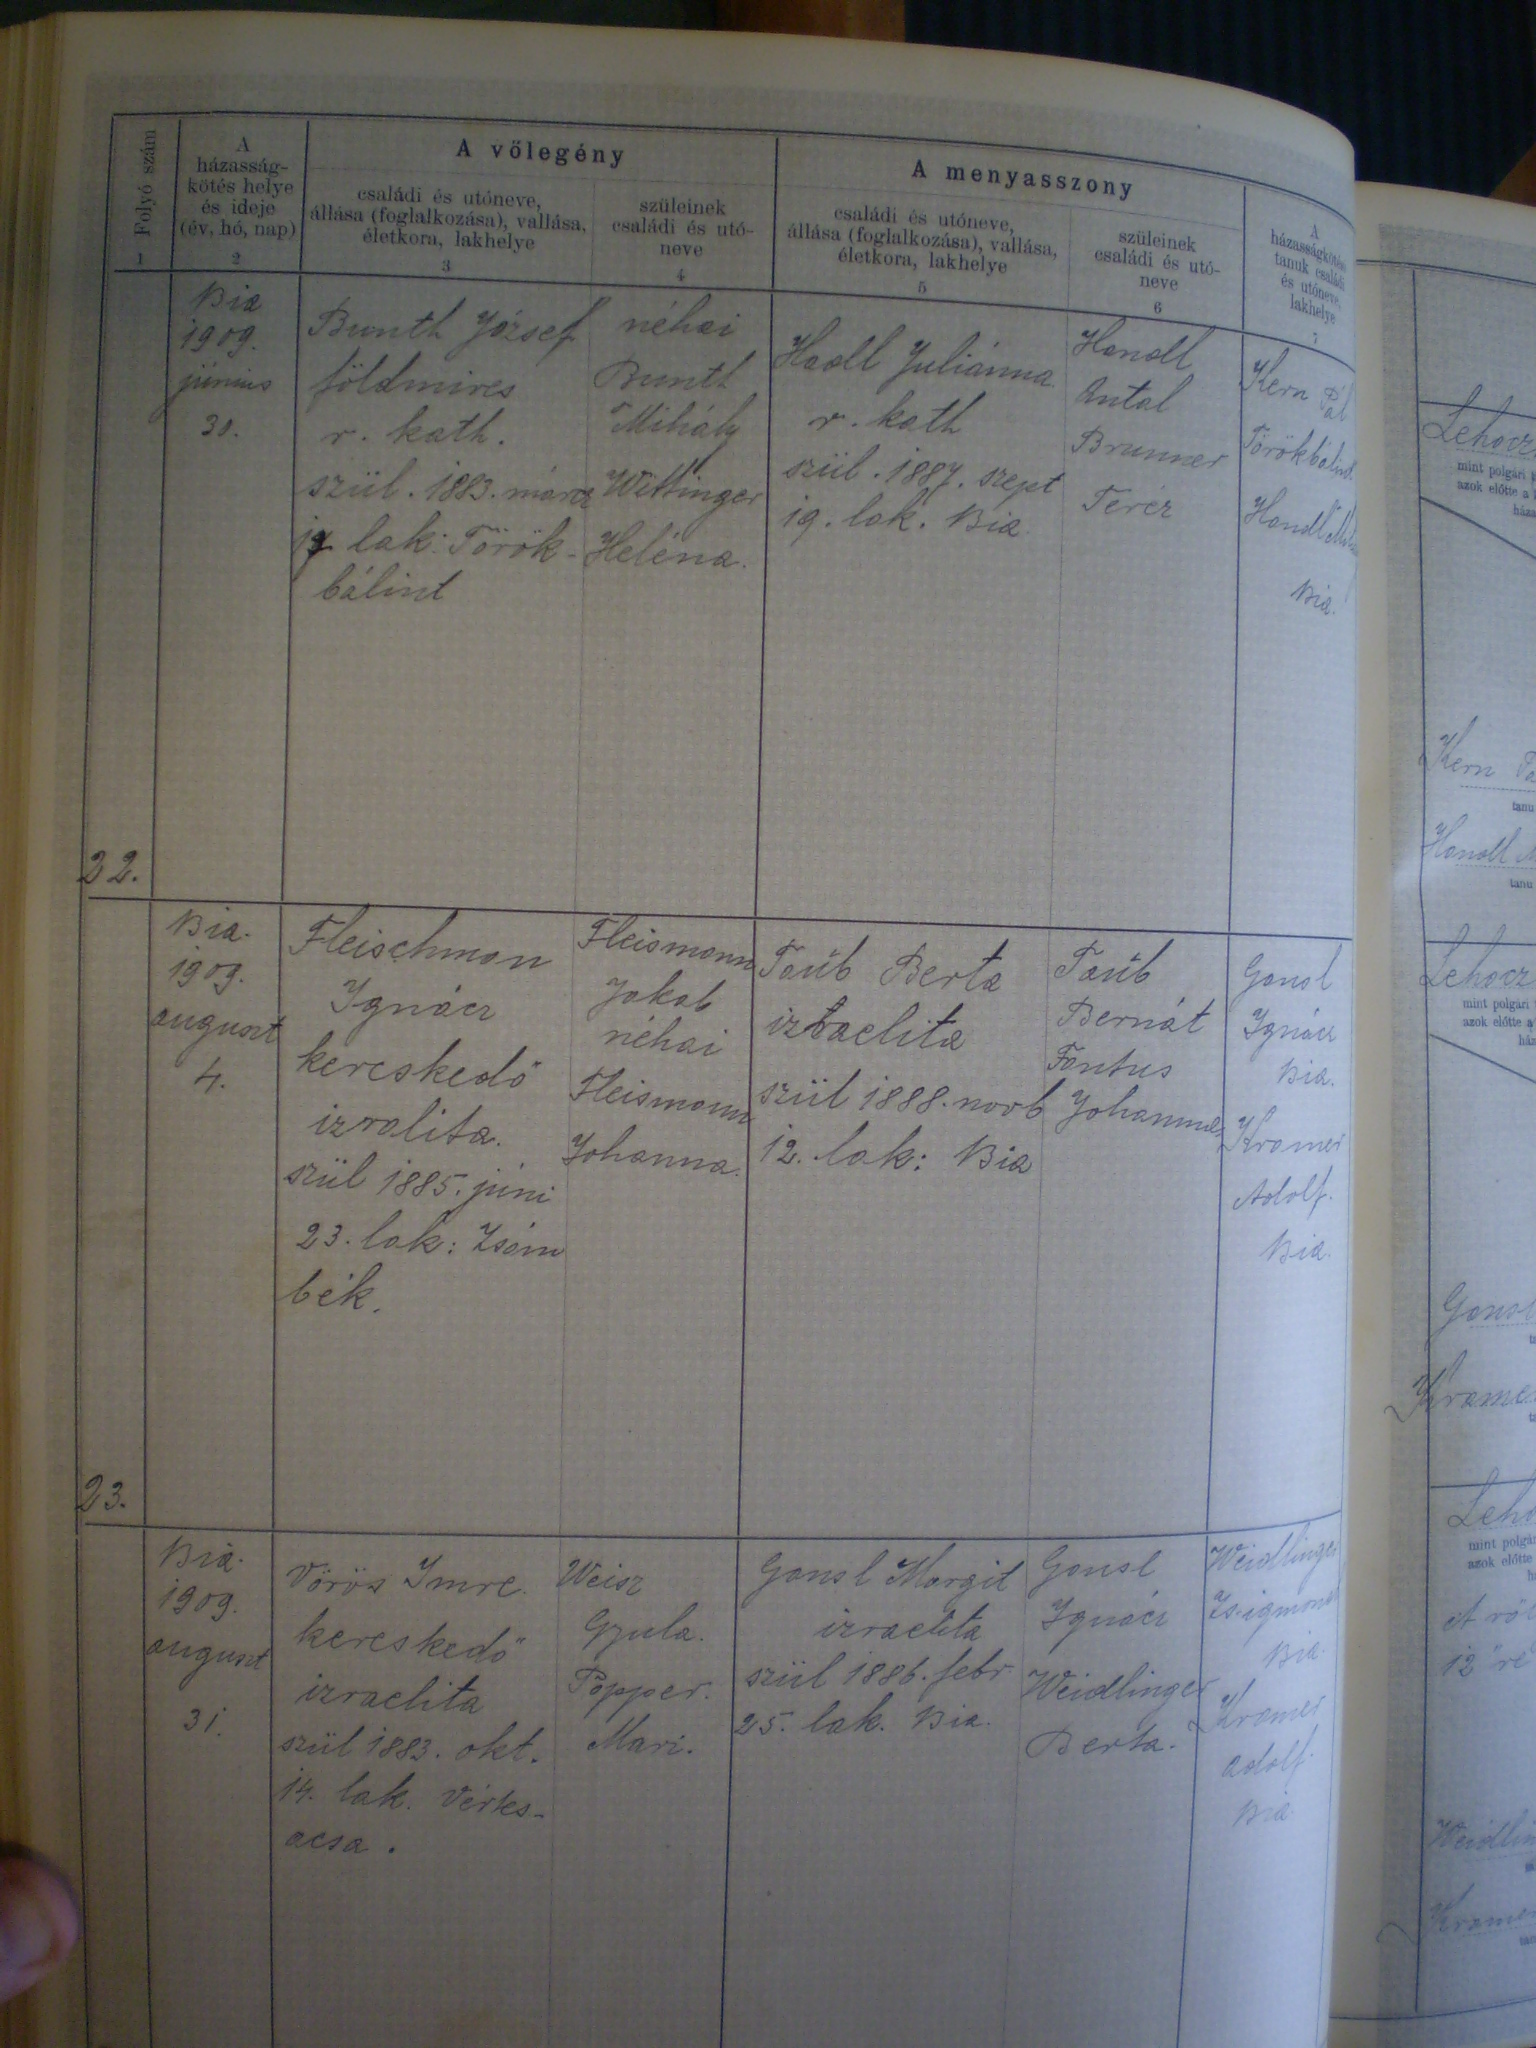 Folyó szám
1
A
házasság-
kötés helye
és ideje
(év, hó, nap)
2
A vőlegény
családi és utóneve,
állása (foglalkozása), vallása,
életkora, lakhelye
3
szüleinek
családi és utó-
neve
4
A menyasszony
családi és utóneve,
állása (foglalkozása), vallása,
életkora, lakhelye
5
szüleinek
családi és utó-
neve
6
A
házasságkötési
tanuk családi
és utóneve,
lakhelye
7
22.
Bia
1909.
június
30.
Bunth József
földmives
r. kath.
szül. 1883. márcz
19 lak: Török-
bálint
néhai
Bunth
Mihály
Wittinger
Heléna.
Haoll Juliánna
r. kath
szül. 1887. szept
19. lak. Bia
Handl
Antal
Brunner
Teréz
Kern Pál
Törökbálint
Handl
Bia.
23.
Bia.
1909.
auguszt
4.
Fleischman
Ignácz
kereskedő
izralita.
szül 1885. júni
23. lak: Zsám
bék.
Fleismann
Jakab
néhai
Fleismann
Johanna.
Taúb Berta
izraelita
szül 1888. novb
12. lak: Bia
Taúb
Bernát
Fantus
Johanna
Gansl
Ignácz
Bia.
Kramer
Adolf.
Bia.
Bia.
1909.
auguszt
31.
Vörös Imre.
kereskedő
izraelita
szül 1883. okt.
14. lak. Vértes-
acsa.
Weisz
Gyula.
Popper.
Mari.
Gansl Margit
izraelita
szül 1886. febr
25. lak. Bia.
Gansl
Ignácz
Weidlinger
Berta.
Weidlinger
Zsigmond
Bia.
Kramer
Adolf.
Bia
Lehocz
mint polgári
azok előtte a
ház
Kern Pá
tanu
Handl
tanu
Lehocz
mint polgári
azok előtte a
ház
Gansl
Krame
Leho
mint polgá
azok előtte
A rö
12
Weidlin
Kramer
tan